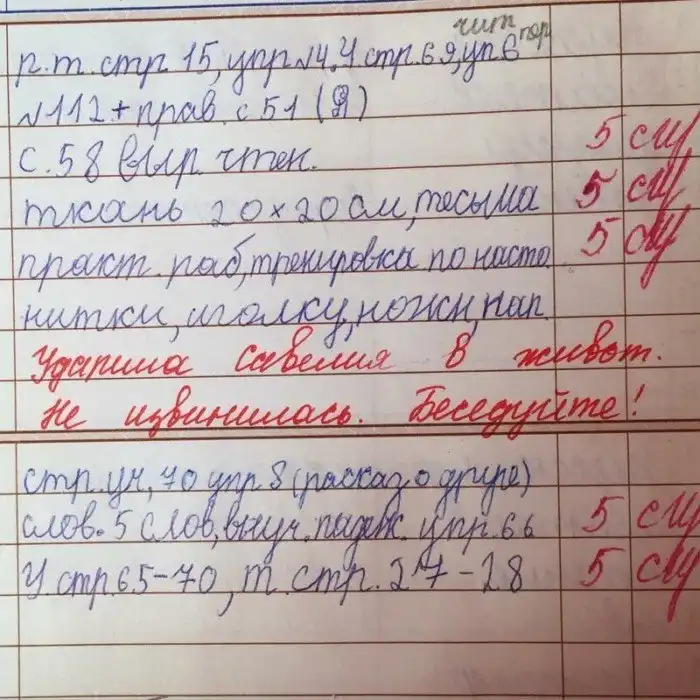 чит пор
р.т. стр 15, упр №4. У стр. 69, уп 6
№112 + прав. с 51 (Я)
с. 58 выр. чтен. 5
ткань 20×20 см, тесьма 5
практ. раб, тренировка по насто 5
нитки, иголку, ножн, нап.
Ударила Савелия в живот.
Не извинилась. Беседуйте!
стр. уч, 70 упр 8 (расказ о друге)
слов. 5 слов, выуч. падеж. упр. 66 5
У. стр. 65-70, т. стр. 27-28 5